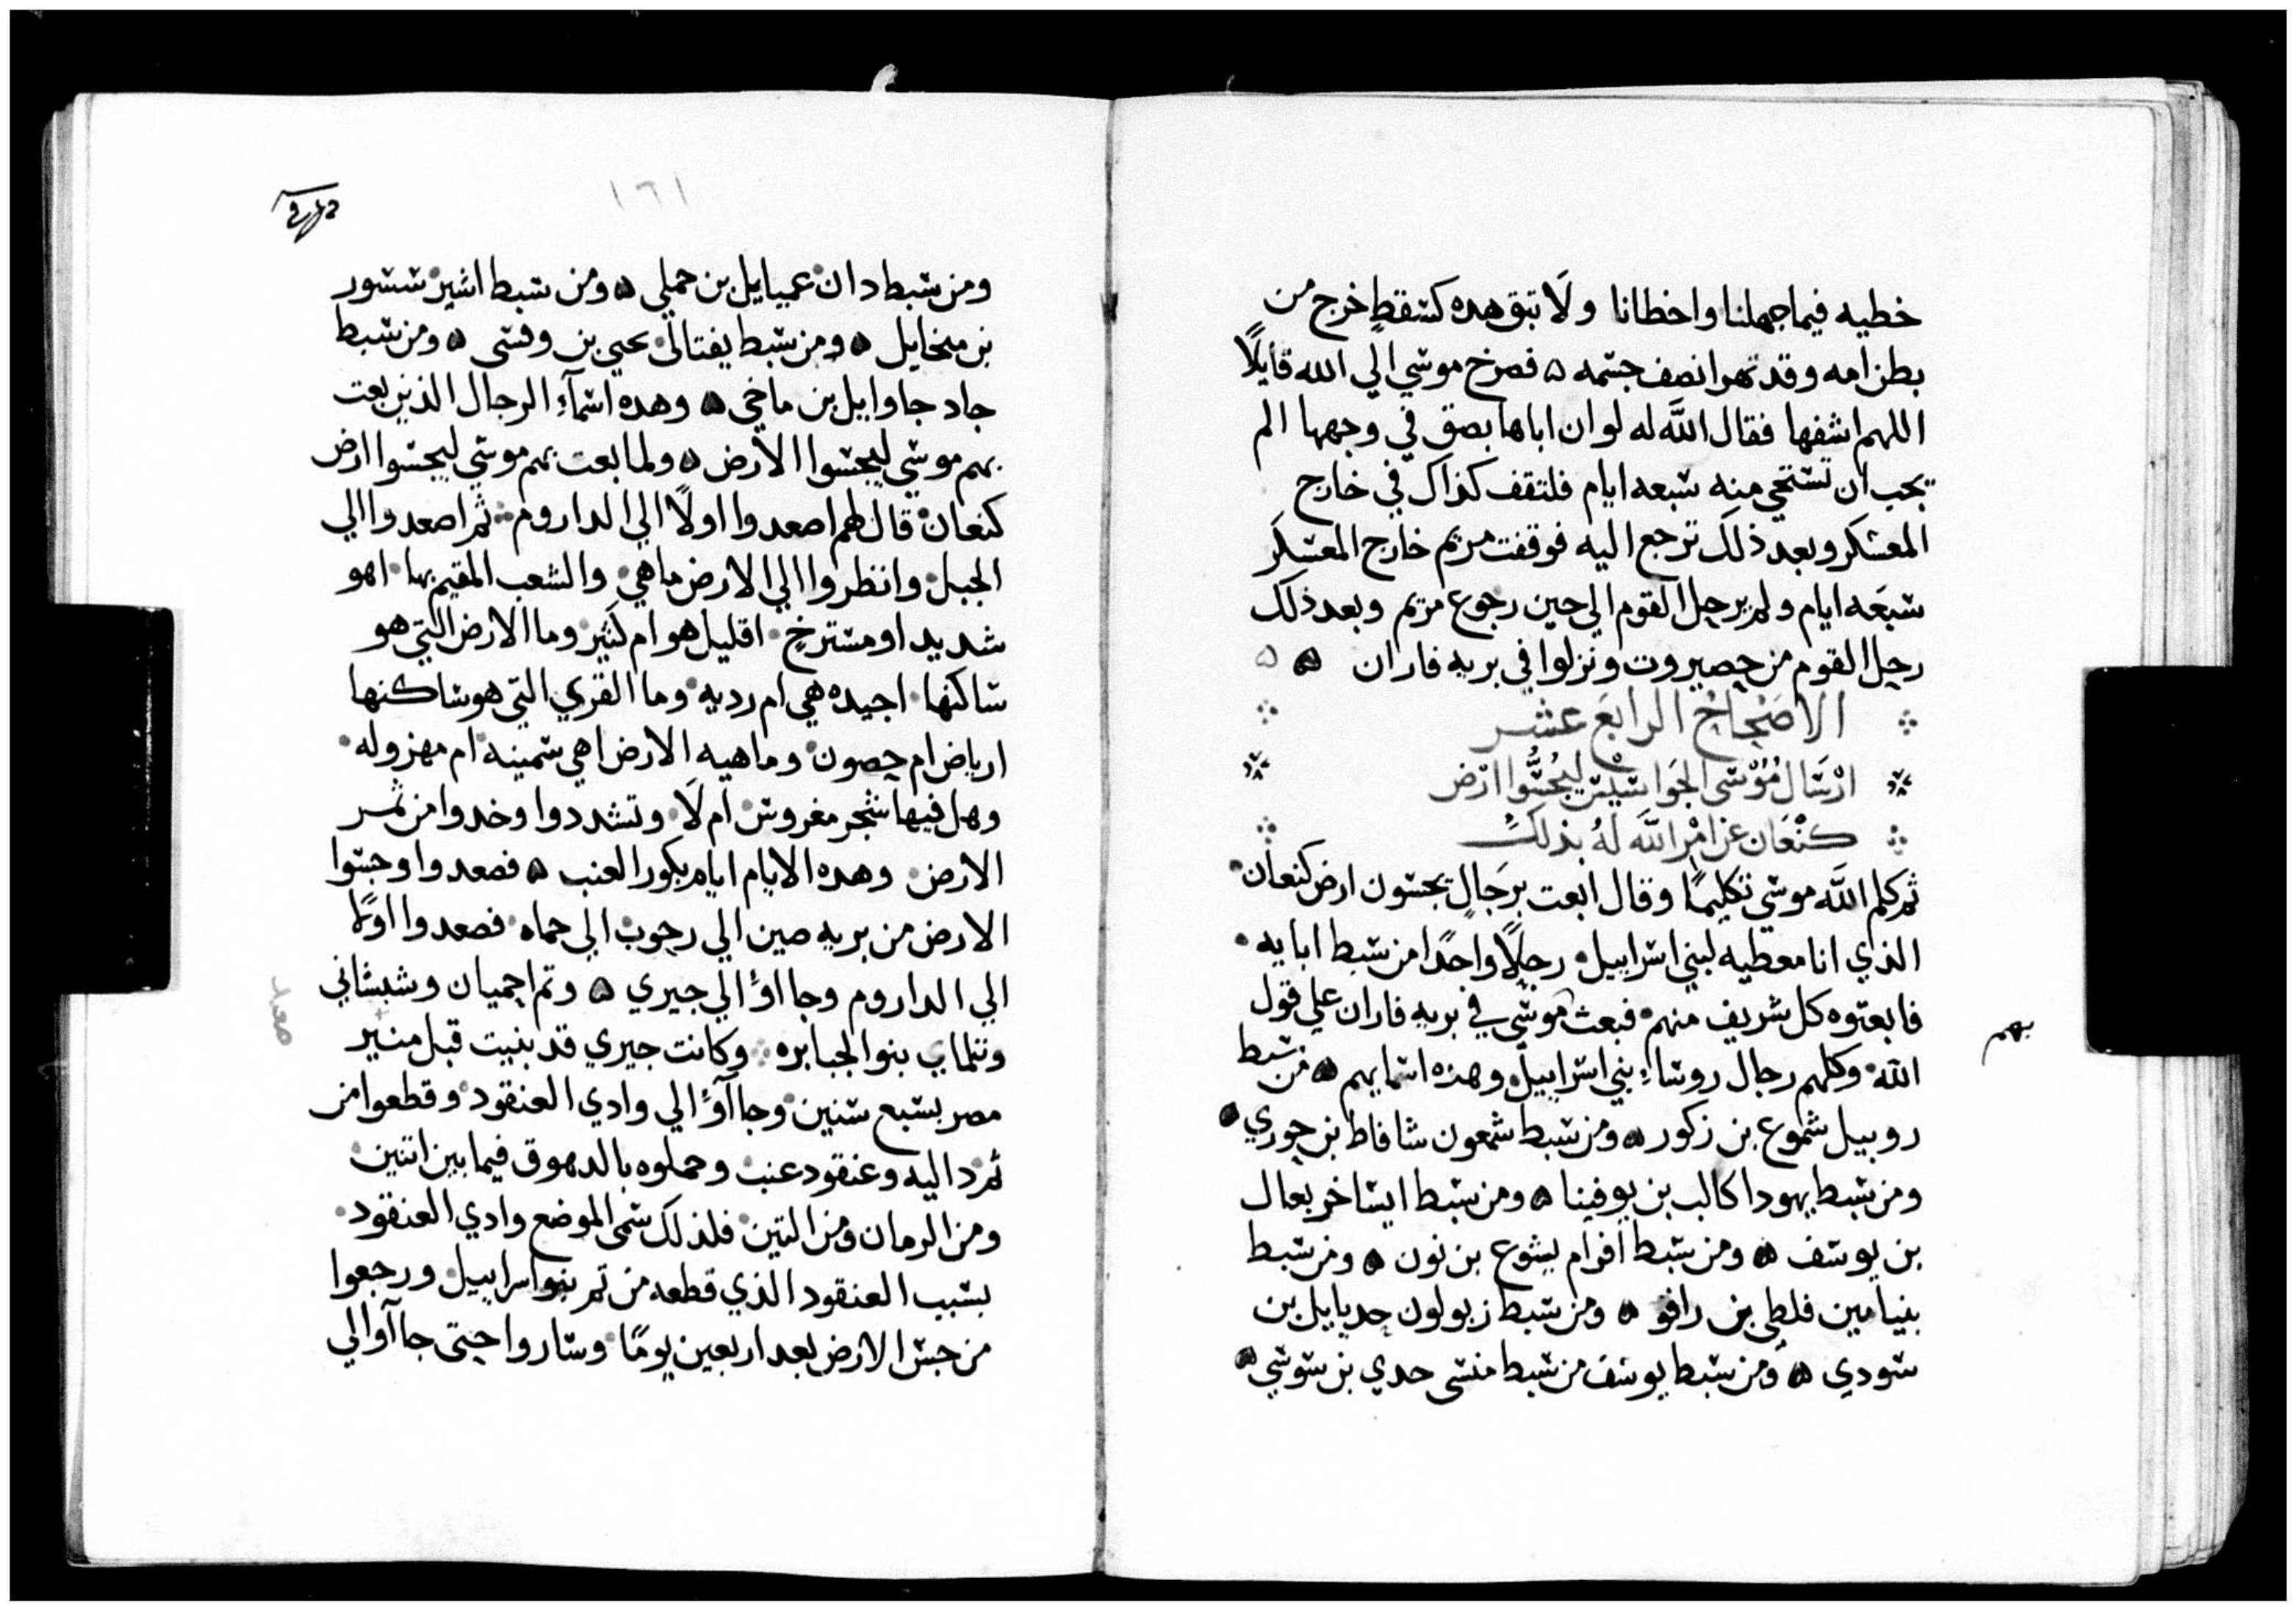 خطيه فيما جهلنا واخطانا ولا تبق هده كسقط خرج من
بطن امه وقد تهرا نصف جسمه ۵ فصرخ موسي الي الله قايلًا
اللهم اشفها فقال الله له لو ان اباها بصق في وجهها الم
يجب ان تستحي منه سبعه ايام فلتقف كذاك في خارج
المعسكر وبعد ذلك ترجع اليه فوقفت مريم خارج المعسكر
سبعه ايام ولم يرحل القوم الي حين رجوع مريم وبعد ذلك
رحل القوم من حصيروت ونزلوا في بريه فاران ۵ ۵
الاصحاح الرابع عشر
ارسال موسى الجواسيس ليجسوا ارض
كنعان عن امر الله له بذلك
ثم كلم الله موسي تكليمًا وقال ابعت برجالٍ يجسون ارض كنعان
الذي انا معطيه لبني اسراييل رجلًا واحدًا من سبط ابايه
فابعتوه كل شريف منهم فبعث موسي في بريه فاران علي قول
بهم
الله وكلهم رجال روساء بني اسراييل وهذه اسمايهم ۵ من سبط
روبيل شموع بن زكور ۵ ومن سبط شمعون شافاط بن حوري
ومن سبط يهودا كالب بن يوفينا ۵ ومن سبط ايساخر يعال
بن يوسف ۵ ومن سبط افرام يشوع بن نون ۵ ومن سبط
بنيامين فلطى بن رافو ۵ ومن سبط زبولون حديايل بن
سودي ۵ ومن سبط يوسف من سبط منسى حدي بن سوسي ۵
١٦١
ومن سبط دان عميايل بن حملي ۵ ومن سبط اشير شسور
بن ميخايل ۵ ومن سبط يفتالى يحيى بن وفسى ۵ ومن سبط
جاد جاوايل بن ماخي ۵ وهده اسمآء الرجال الذين بعت
بهم موسي ليجسوا الارض ۵ ولما بعت بهم موسي ليجسوا ارض
كنعان قال لهم اصعدوا اولًا الي الداروم ثم اصعدوا الي
الجبل وانظروا الي الارض ماهي والشعب المقيم بها اهو
شديد او مسترخٍ اقليل هو ام كثير وما الارض التي هو
ساكنها اجيده هي ام رديه وما القري التي هو ساكنها
ارباض ام حصون وماهيه الارض اهي سمينه ام مهزوله
وهل فيها شجر مغروس ام لا وتشددوا وخدوا من ثمر
الارض وهده الايام ايام بكور العنب ۵ فصعدوا وجسوا
الارض من بريه صين الي رحوب الي حماه فصعدوا اولًا
الي الداروم وجااوا الي جيري ۵ وتم احميان وشيشاني
وتلماي بنو الجبابره وكانت جيري قد بنيت قبل منير
مصر بسبع سنين وجاآوا الي وادي العنقود وقطعوا من
ثم داليه وعنقود عنب وحملوه بالدهوق فيما بين اتنين
ومن الرمان ومن التين فلذلك سمى الموضع وادي العنقود
بسبب العنقود الذي قطعه من تم بنوا سراييل ورجعوا
من جس الارض بعد اربعين يومًا وساروا حتى جاآوا الي